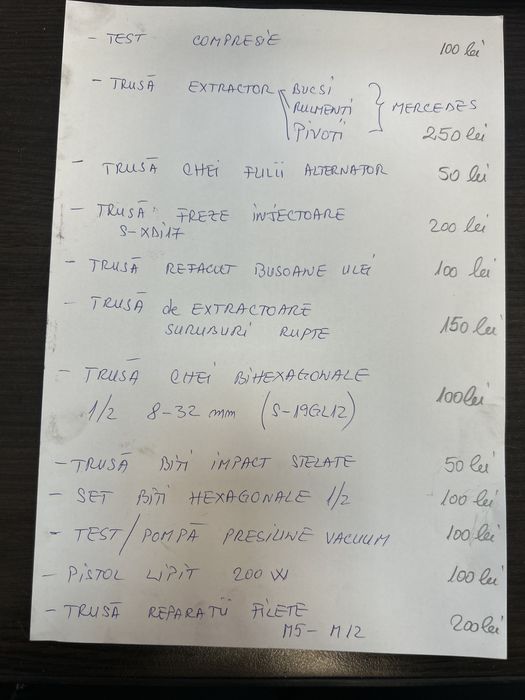 - TEST COMPRESIE 100 lei
- TRUSĂ EXTRACTOR BUCSI
RULMENTI } MERCEDES
PIVOTI 250 lei
- TRUSĂ CHEI FULII ALTERNATOR 50 lei
- TRUSĂ FREZE INJECTOARE 200 lei
S-XDi17
- TRUSĂ REFACUT BUSOANE ULEI 100 lei
- TRUSĂ de EXTRACTOARE
SURUBURI RUPTE 150 lei
- TRUSĂ CHEI BIHEXAGONALE
1/2 8-32 mm (S-19GL12) 100 lei
- TRUSĂ BITI IMPACT STELATE 50 lei
- SET BITI HEXAGONALE 1/2 100 lei
- TEST/POMPĂ PRESIUNE VACUUM 100 lei
- PISTOL LIPIT 200 W 100 lei
- TRUSĂ REPARATII FILETE
M5 - M12 200 lei